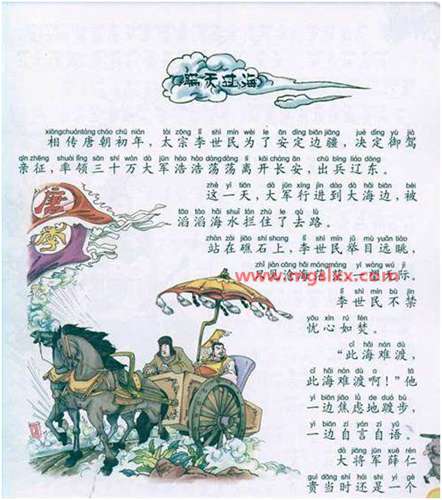 瞒天过海
xiāngchuántáng cháo chū nián tài zōng lǐ shì mín wèi le ān dìng biān jiāng jué dìng yù jià
相传唐朝初年，太宗李世民为了安定边疆，决定御驾
qīn zhēng shuài lǐng sān shí wàn dà jūn hào hào dàng dàng lí kāi cháng ān chū bīng liáo dōng
亲征，率领三十万大军浩浩荡荡离开长安，出兵辽东。
zhè yì tiān dà jūn xíng jìn dào dà hǎi biān bèi
这一天，大军行进到大海边，被
tāo tāo hǎi shuǐ lán zhù le qù lù
滔滔海水拦住了去路。
zhàn zài jiāo shí shàng lǐ shì mín jǔ mù yuǎn tiào
站在礁石上，李世民举目远眺，
zhǐ jiàn cāng hǎi máng máng yí wàng wú jì
只见沧海茫茫，一望无际。
www.mgalsx.com
lǐ shì mín bù jīn
李世民不禁
yōu xīn rú fén
忧心如焚。
cǐ hǎi nán dù
“此海难渡，
cǐ hǎi nán dù a tā
此海难渡啊！”他
yì biān jiāo lǜ de duó bù
一边焦虑地踱步，
yì biān zì yán zì yǔ
一边自言自语。
dà jiāng jūn xuē rén
大将军薛仁
guì dāng shí hái shì yí gè
贵当时还是一个
唐
李